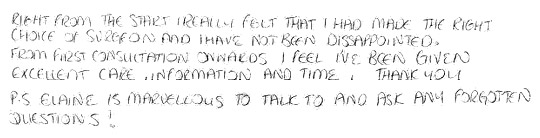 RIGHT FROM THE START I REALLY FELT THAT I HAD MADE THE RIGHT
CHOICE OF SURGEON AND I HAVE NOT BEEN DISSAPOINTED.
FROM FIRST CONSULTATION ONWARDS I FEEL I'VE BEEN GIVEN
EXCELLENT CARE, INFORMATION AND TIME. THANK YOU
P.S ELAINE IS MARVELLOUS TO TALK TO AND ASK ANY FORGOTTEN
QUESTIONS!